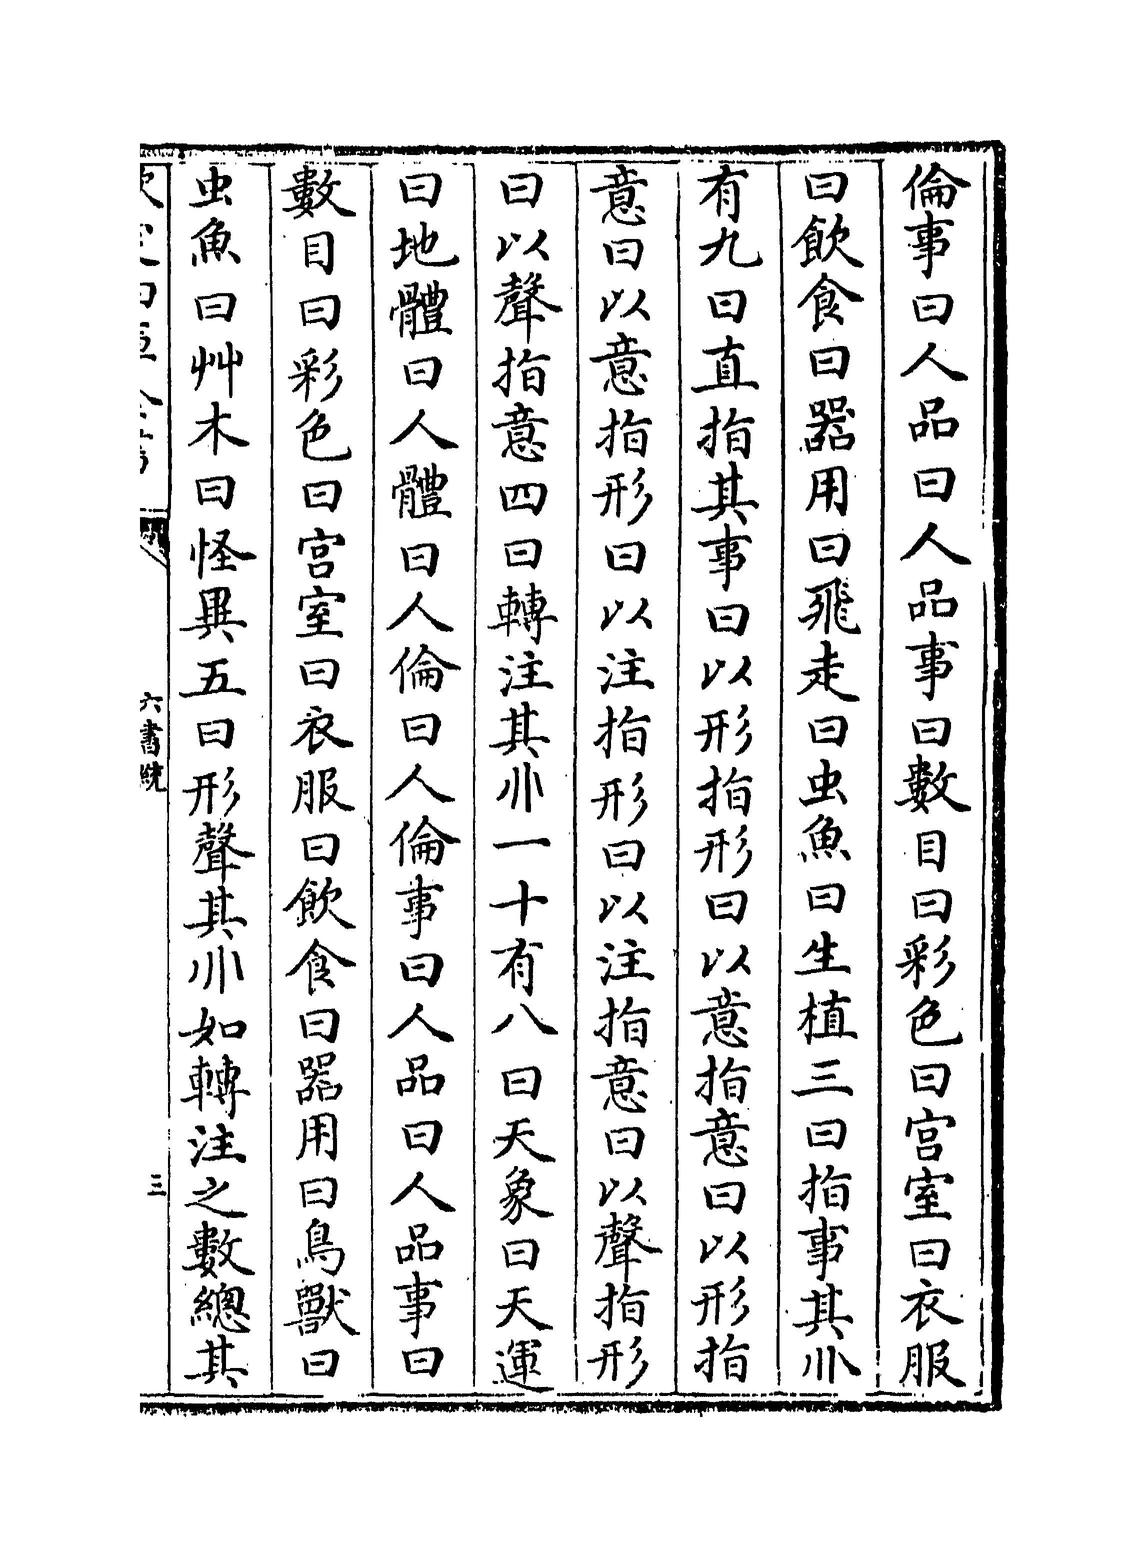 倫事曰人品曰人品事曰數目曰彩色曰宫室曰衣服
曰飲食曰器用曰飛走曰虫魚曰生植三曰指事其𠔁
有九曰直指其事曰以形指形曰以意指意曰以形指
意曰以意指形曰以注指形曰以注指意曰以聲指形
曰以聲指意四曰轉注其𠔁一十有八曰天象曰天運
曰地體曰人體曰人倫曰人倫事曰人品曰人品事曰
數目曰彩色曰宫室曰衣服曰飲食曰器用曰鳥獸曰
虫魚曰艸木曰怪異五曰形聲其𠔁如轉注之數總其
六書統
三